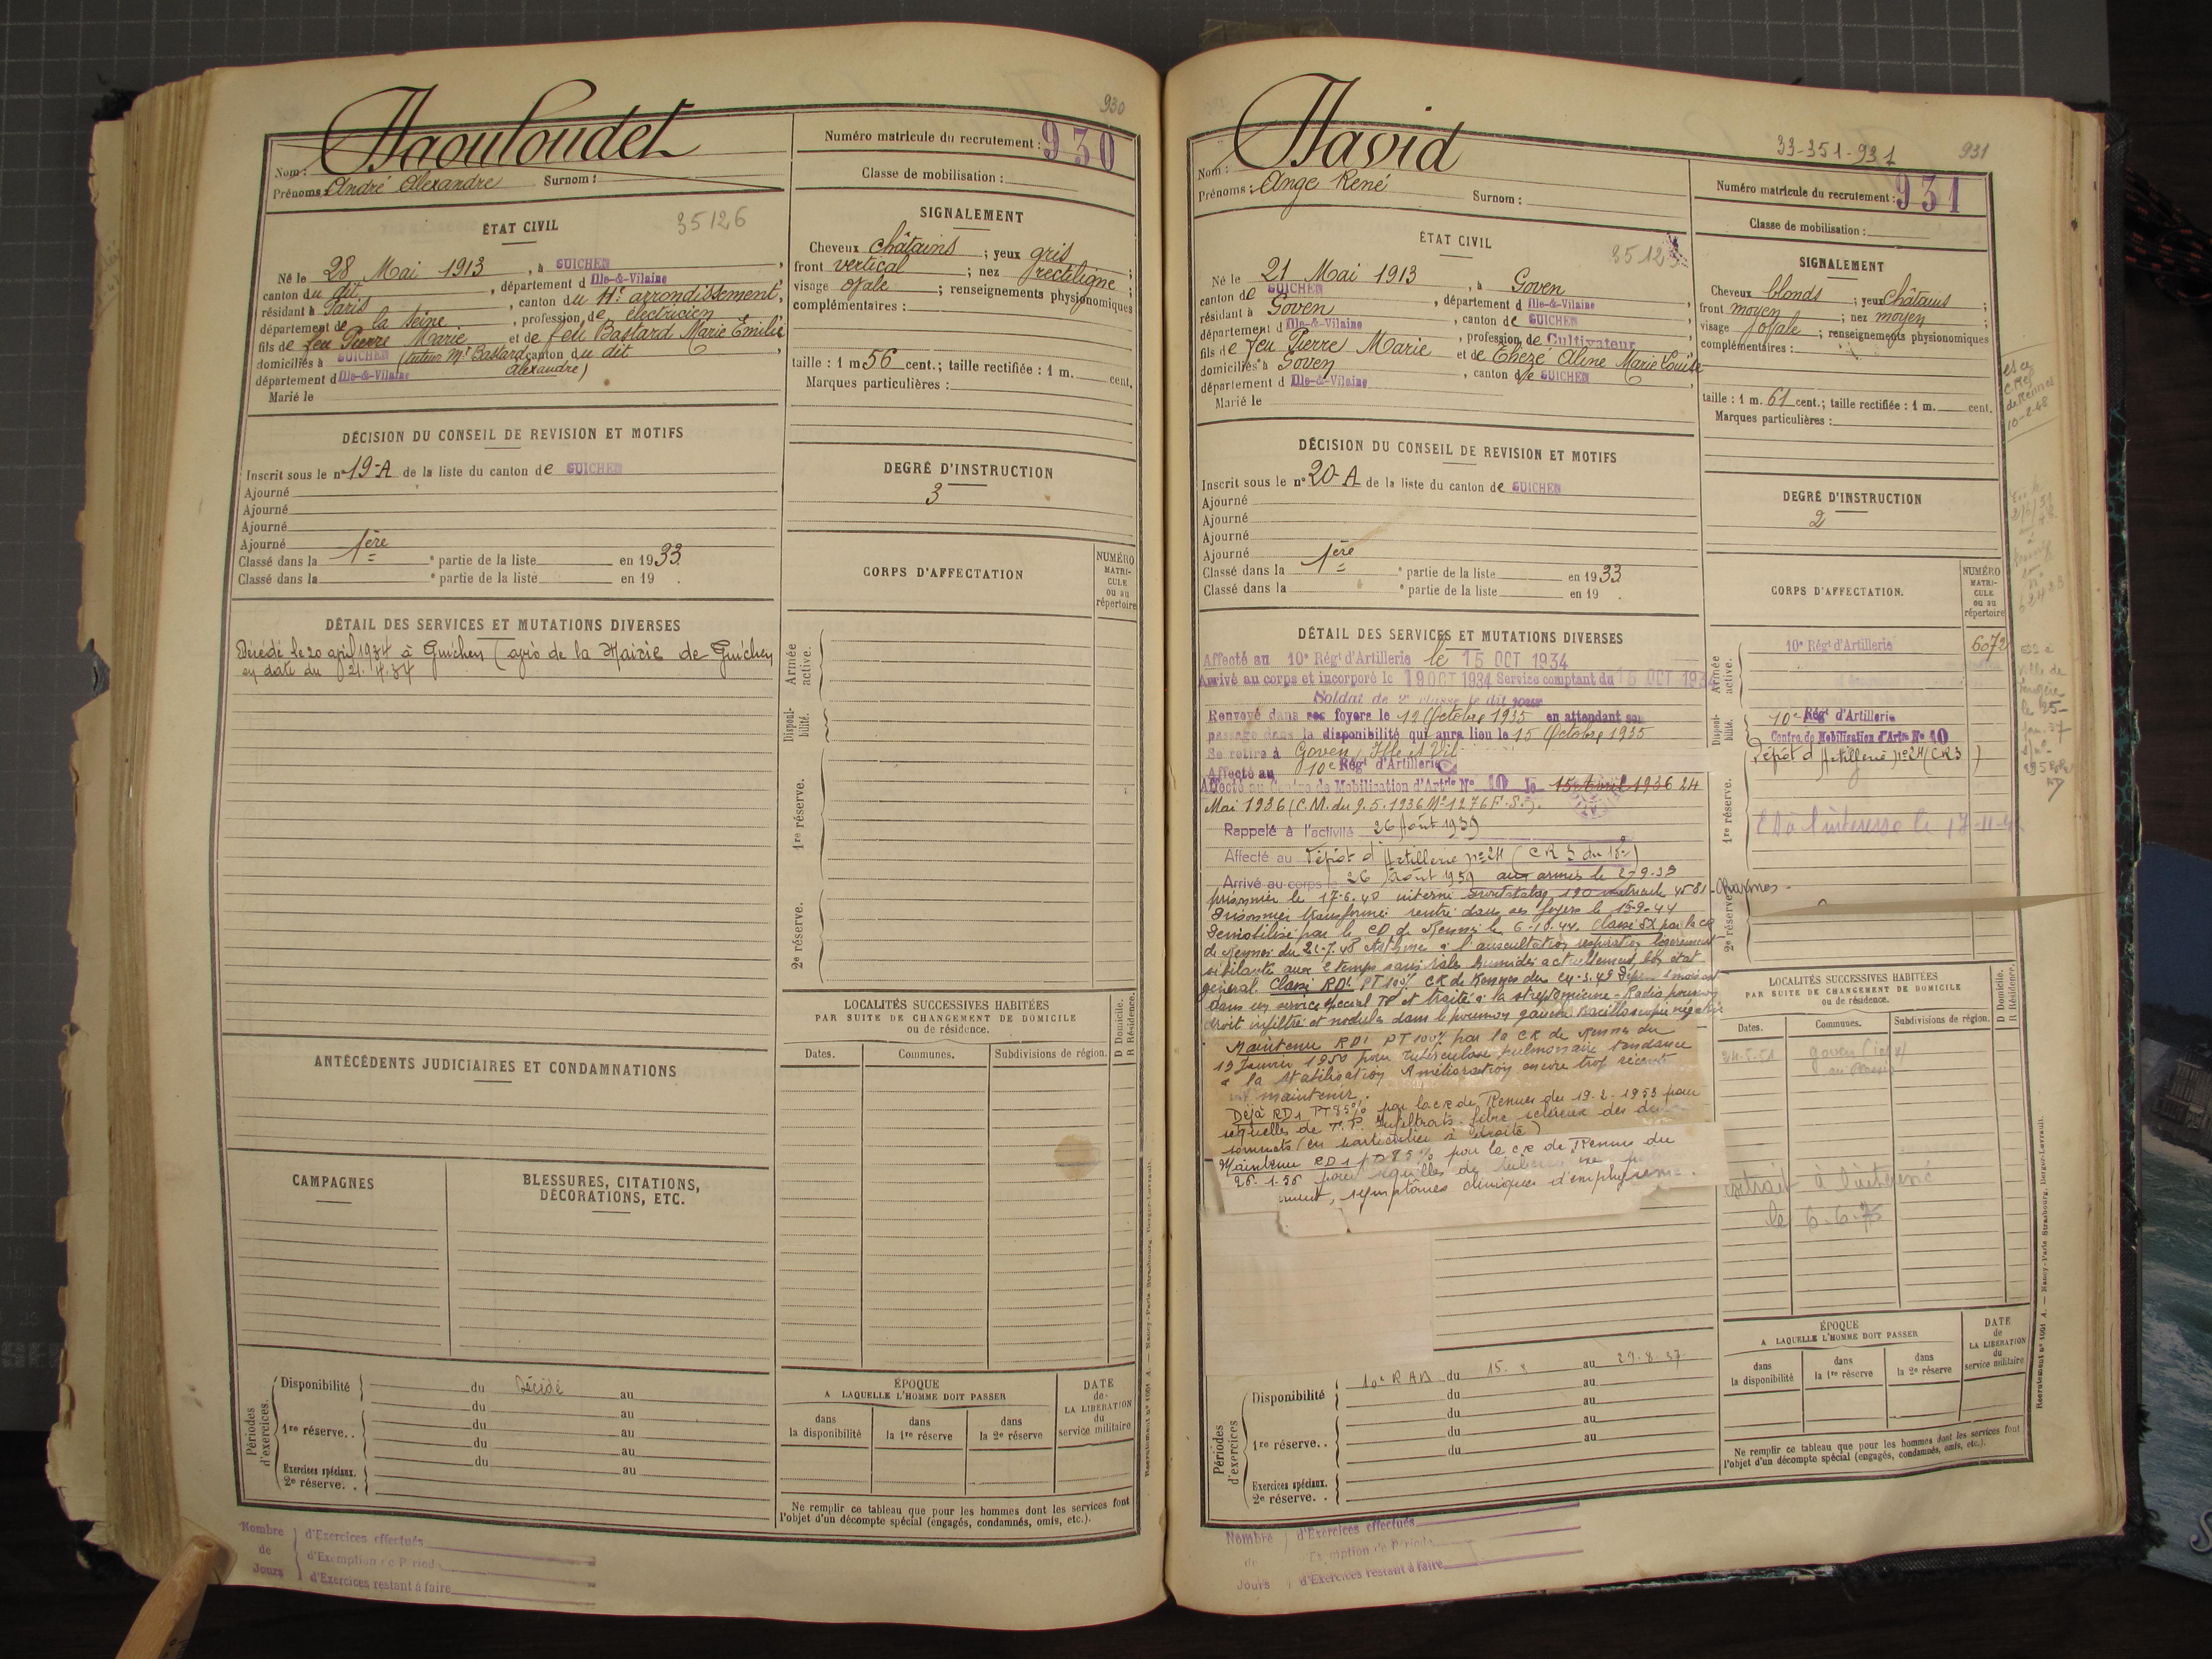 930
Daouloudet
Nom :
Prénoms : André Alexandre Surnom :
Numéro matricule du recrutement : 930
Classe de mobilisation :
ÉTAT CIVIL
35126
Né le 28 Mai 1913, à GUICHEN,
canton du dit, département d Ille-&-Vilaine
résidant à Paris, canton du arrondissement,
département de la Seine, profession de électricien
fils de feu Pierre Marie et de feu Bastard Marie Emilie
domiciliés à GUICHEN (tuteur Mr Bastard canton du dit
département d Ille-&-Vilaine Alexandre)
Marié le
SIGNALEMENT
Cheveux châtains ; yeux gris
front vertical ; nez rectiligne ;
visage ovale ; renseignements physionomiques
complémentaires :
taille : 1 m 56 cent.; taille rectifiée : 1 m. cent.
Marques particulières :
DÉCISION DU CONSEIL DE REVISION ET MOTIFS
Inscrit sous le n° 19-A de la liste du canton de GUICHEN
Ajourné
Ajourné
Ajourné
Ajourné
Classé dans la 1ère partie de la liste en 1933
Classé dans la partie de la liste en 19 .
DEGRÉ D'INSTRUCTION
3
CORPS D'AFFECTATION
NUMÉRO MATRI-CULE ou au répertoire
DÉTAIL DES SERVICES ET MUTATIONS DIVERSES
Décédé le 20 april 1934 à Guichen (avis de la Mairie de Guichen
en date du 21.4.34
Armée active.
Disponi-bilité.
1re réserve.
2e réserve.
LOCALITÉS SUCCESSIVES HABITÉES
PAR SUITE DE CHANGEMENT DE DOMICILE
ou de résidence.
D Domicile.
R Résidence.
Dates. Communes. Subdivisions de région.
ANTÉCÉDENTS JUDICIAIRES ET CONDAMNATIONS
CAMPAGNES
BLESSURES, CITATIONS,
DÉCORATIONS, ETC.
Périodes d'exercices.
Disponibilité du Décédé au
du au
1re réserve. . du au
du au
Exercices spéciaux. du au
2e réserve. .
ÉPOQUE
A LAQUELLE L'HOMME DOIT PASSER
dans la disponibilité
dans la 1re réserve
dans la 2e réserve
DATE de LA LIBERATION du service militaire
Ne remplir ce tableau que pour les hommes dont les services font
l'objet d'un décompte spécial (engagés, condamnés, omis, etc.).
Nombre de Jours
d'Exercices effectués
d'Exemption de Période
d'Exercices restant à faire
33-351-931
931
David
Nom :
Prénoms : Ange René Surnom :
Numéro matricule du recrutement : 931
Classe de mobilisation :
ÉTAT CIVIL
3512
Né le 21 Mai 1913, à Goven
canton de GUICHEN, département d Ille-&-Vilaine
résidant à Goven, canton de GUICHEN
département d Ille-&-Vilaine, profession de Cultivateur
fils de feu Pierre Marie et de Thézé Aline Marie Louise
domiciliés à Goven, canton de GUICHEN
département d Ille-&-Vilaine
Marié le
SIGNALEMENT
Cheveux blonds ; yeux châtains ;
front moyen ; nez moyen ;
visage ovale ; renseignements physionomiques
complémentaires :
taille : 1 m. 61 cent.; taille rectifiée : 1 m. cent.
Marques particulières :
de Rennes
10-2-48
DÉCISION DU CONSEIL DE REVISION ET MOTIFS
Inscrit sous le n° 20-A de la liste du canton de GUICHEN
Ajourné
Ajourné
Ajourné
Ajourné
Classé dans la 1ère partie de la liste en 1933
Classé dans la partie de la liste en 19 .
DEGRÉ D'INSTRUCTION
2
CORPS D'AFFECTATION.
NUMÉRO MATRI-CULE ou au répertoire
DÉTAIL DES SERVICES ET MUTATIONS DIVERSES
Affecté au 10e Régt d'Artillerie le 15 OCT 1934
Arrivé au corps et incorporé le 19 OCT 1934 Service comptant du 15 OCT 1934
Soldat de 2e classe le dit jour
Renvoyé dans ses foyers le 12 Octobre 1935 en attendant son
passage dans la disponibilité qui aura lieu le 15 Octobre 1935
Se retire à Goven, Ille et Vil.
Affecté au 10e Régt d'Artillerie
Affecté au Centre de Mobilisation d'Artrie No 10 le 15 Avril 1936 24
Mai 1936 (C.M. du 9.5.1936 No 1276 F.S.).
Rappelé à l'activité 26 Août 1939
Affecté au Dépôt d'Artillerie n° 24 (CR 3 du 18e)
Arrivé au corps le 26 Août 1939 aux armées le 2-9-39
prisonnier le 17-6-40 interné stalag 190 matricule 4581
Prisonnier transformé rentré dans ses foyers le 15-9-44
Démobilisé par le CD de Rennes le 6-10-44. Classé SX par la CR
de Rennes du 21-7-48 Asthme à l'auscultation respiration légèrement
sibilante aux 2 temps sans râles humides actuellement, bon état
général. Classé RD1 PT 100% CR de Rennes du 24-3-49
dans un service spécial TP et traité à la streptomicine - Radio poumon
droit infiltré et nodules dans le poumon gauche Bacilloscopie négative
Maintenu RD1 PT 100% par la CR de Rennes du
13 Janvier 1950 pour tuberculose pulmonaire tendance
à la stabilisation Amélioration encore trop récente
maintenir.
Déjà RD1 PT 85% par la CR de Rennes du 19-2-1953 pour
séquelles de T.P. Infiltrats fibro scléreux des
sommets (en particulier à droite)
Maintenu RD1 PD 85% par la CR de Rennes du
26-1-56 pour séquelles de
symptômes cliniques d'emphysème.
Armée active.
10e Régt d'Artillerie 6072
Disponi-bilité.
10e Régt d'Artillerie
Centre de Mobilisation d'Artie No 10
Dépôt d'Artillerie n° 24 (CR3)
1re réserve.
2e réserve.
LOCALITÉS SUCCESSIVES HABITÉES
PAR SUITE DE CHANGEMENT DE DOMICILE
ou de résidence.
D Domicile.
R Résidence.
Dates. Communes. Subdivisions de région.
24-5-51 Goven
extrait à l'intéressé
le 6-6-75
Périodes d'exercices
Disponibilité 10e RAD du 15. 8 au 29.8.37
du au
du au
1re réserve. . du au
du au
Exercices spéciaux.
2e réserve. .
ÉPOQUE
A LAQUELLE L'HOMME DOIT PASSER
dans la disponibilité
dans la 1re réserve
dans la 2e réserve
DATE de LA LIBERATION du service militaire
Ne remplir ce tableau que pour les hommes dont les services font
l'objet d'un décompte spécial (engagés, condamnés, omis, etc.).
Nombre de Jours
d'Exercices effectués
d'Exemption de Période
d'Exercices restant à faire